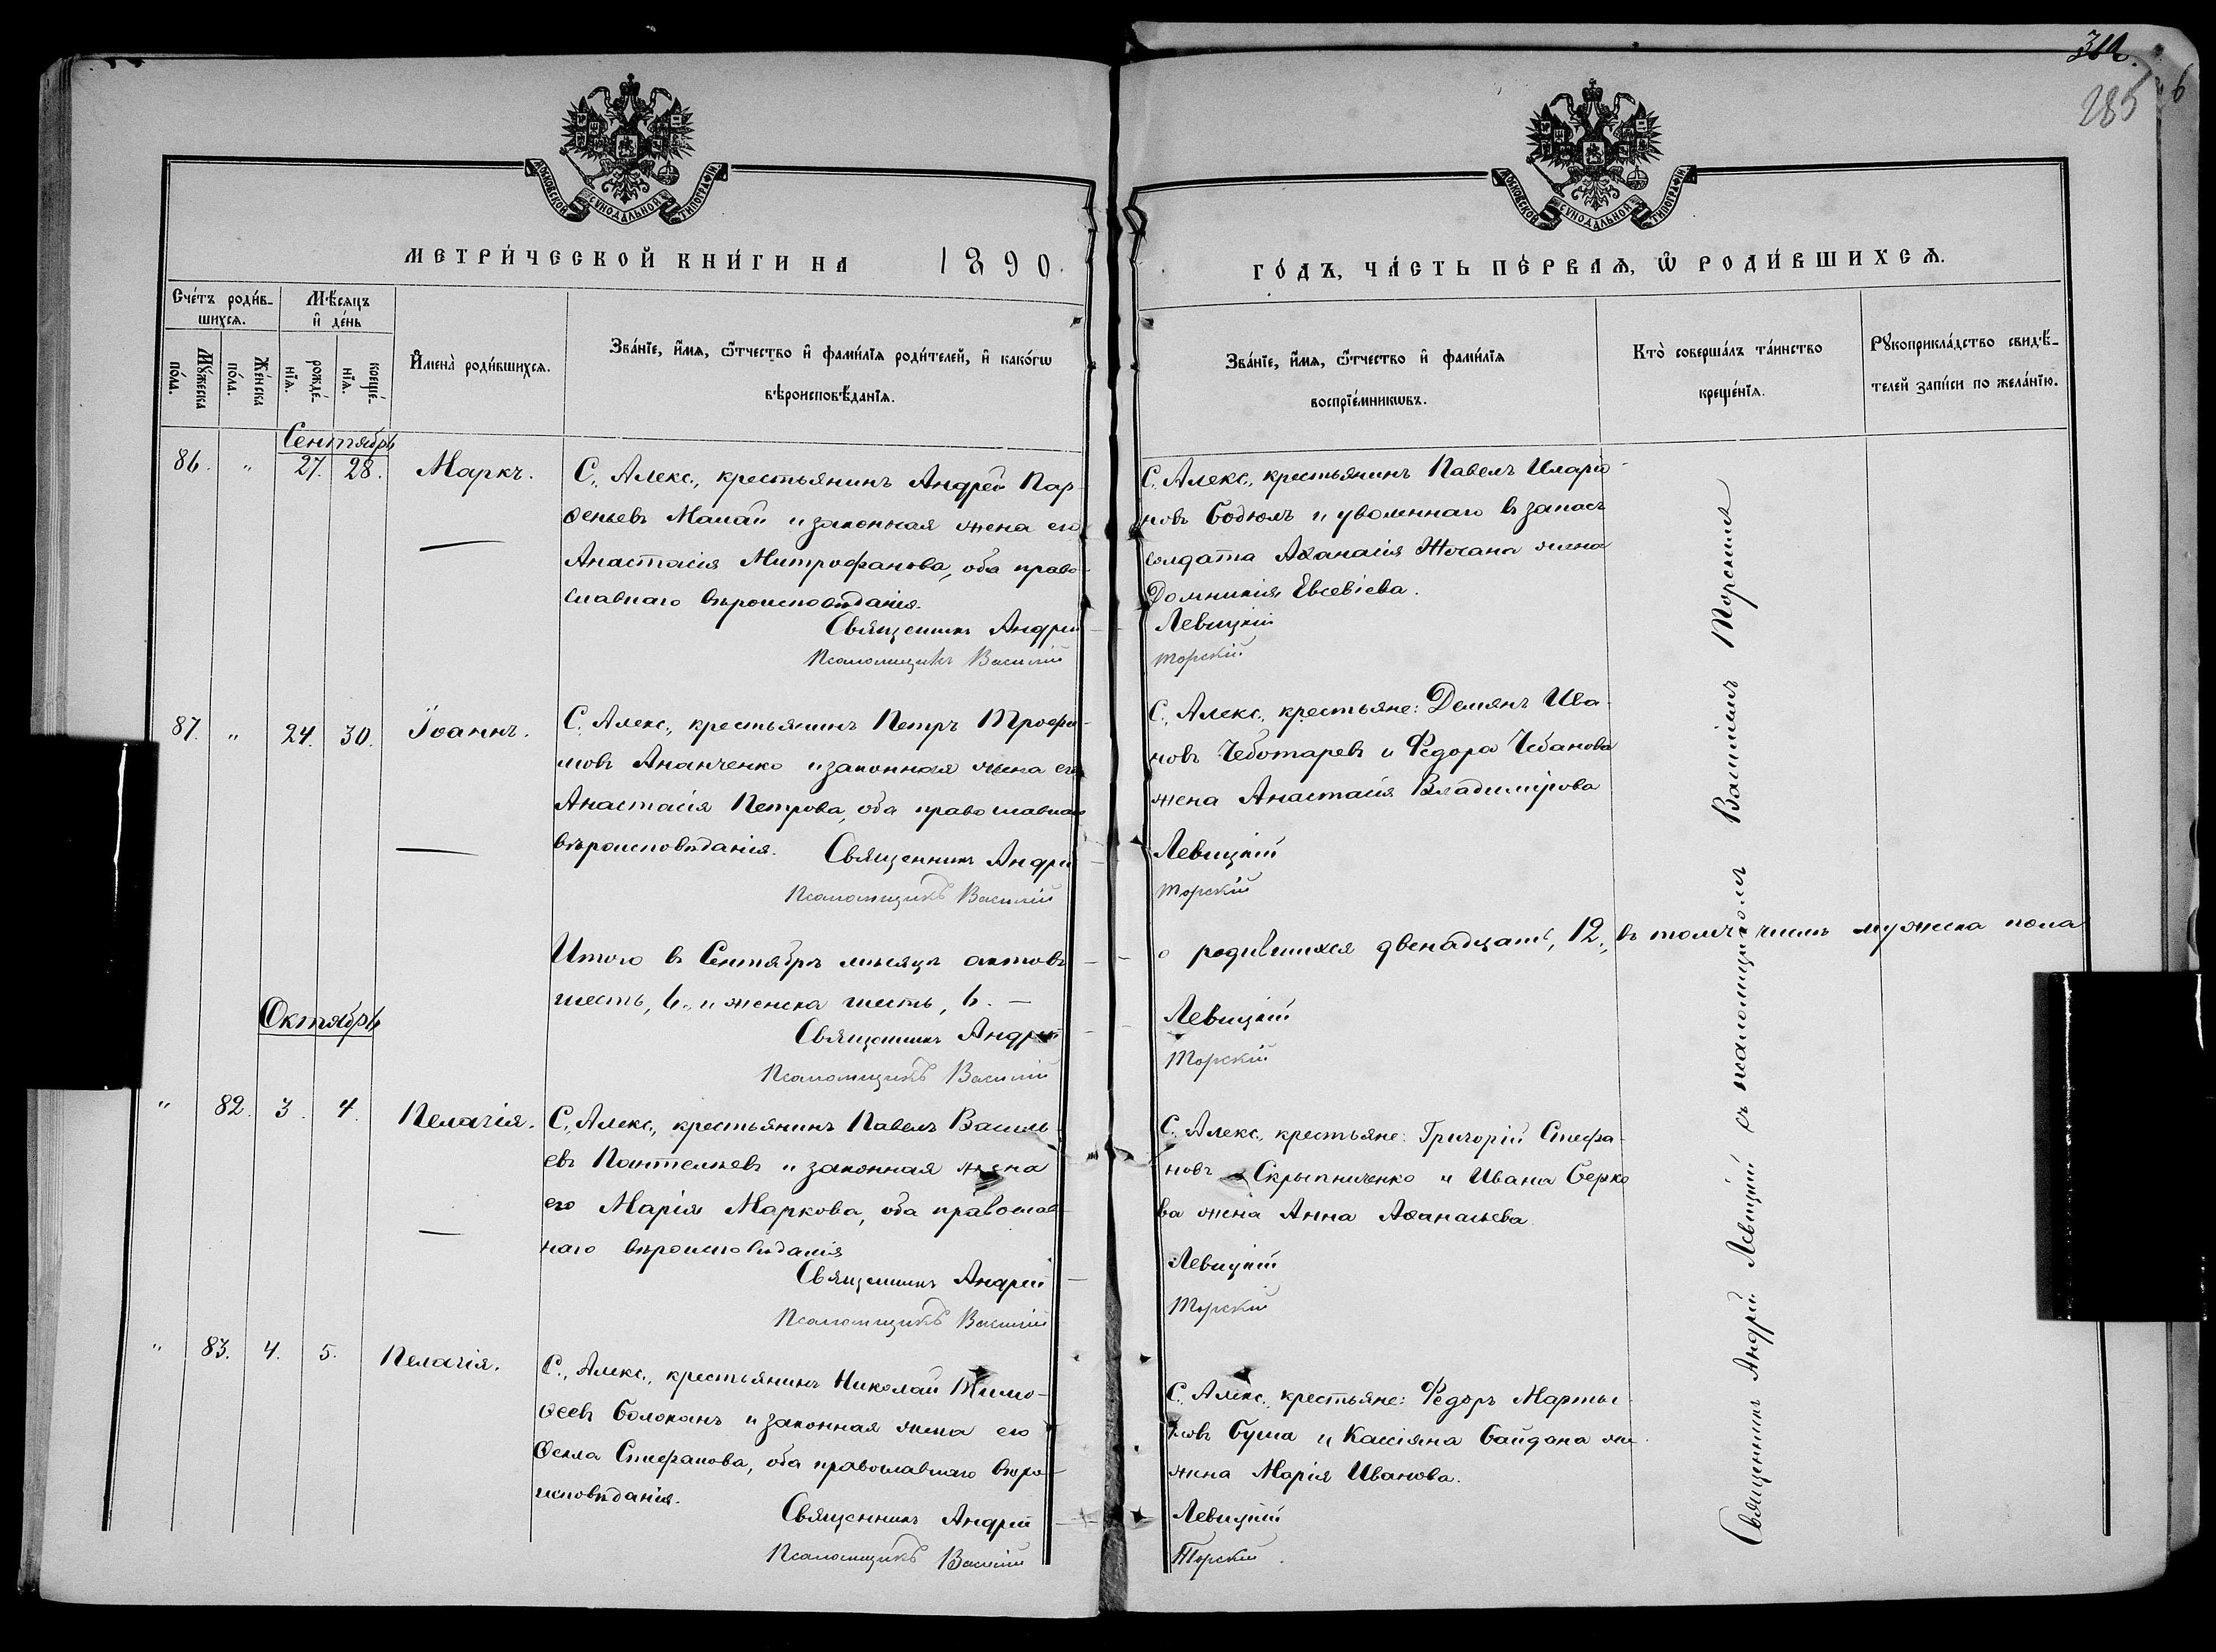 312.
285
6
МОСКОВСКОЙ СѴНОДАЛЬНОЙ ТИПОГРАФІИ
МОСКОВСКОЙ СѴНОДАЛЬНОЙ ТИПОГРАФІИ
МЕТРИ́ЧЕСКОЙ КНИ́ГИ НА 1890.
ГО́ДЪ, ЧА́СТЬ ПЕ́РВАѦ, Ѡ҆ РОДИ́ВШИХСѦ.
Сче́тъ роди́в-
шихсѧ.
Мꙋ́жеска
по́ла.
Же́нска
по́ла.
Мѣ́сѧцъ
и҆ де́нь
рожде́-
нїѧ.
креще́-
нїѧ.
И҆мена̀ роди́вшихсѧ.
Зва́нїе, и҆́мѧ, ѻ҆́тчество и҆ фами́лїѧ роди́телей, и҆ како́гѡ
вѣроисповѣ́данїѧ.
Зва́нїе, и҆́мѧ, ѻ҆́тчество и҆ фами́лїѧ
воспрїе́мникѡвъ.
Кто̀ соверша́лъ та́инство
креще́нїѧ.
Рꙋкоприкла́дство свидѣ́-
телей запи́си по жела́нїю.
Сентябрь
86. " 27. 28. Маркъ.
С. Алекс., крестьянинъ Андрей Пар-
ѳеньевъ Малай и законная жена его
Анастасія Митрофанова, оба право-
славнаго вѣроисповѣданія.
Священникъ Андрей
Псаломщикъ Василій
С. Алекс., крестьянинъ Павелъ Иларіо-
новъ Бодюлъ и уволеннаго въ запасъ
солдата Аѳанасія жена
Домникія Евсевіева.
Левицкій
Торскій
87. " 24. 30. Іоаннъ.
С. Алекс., крестьянинъ Петръ Трофи-
мовъ Ананченко и законная жена его
Анастасія Петрова, оба православнаго
вѣроисповѣданія. Священникъ Андрей
Псаломщикъ Василій
С. Алекс., крестьяне: Демянъ Ива-
новъ Чеботаревъ и Ѳедора Чебанова
жена Анастасія Владимірова
Левицкій
Торскій
Итого въ Сентябрѣ мѣсяцѣ актовъ — о родившихся двенадцать, 12., въ томъ числѣ мужеска пола
шесть, 6., и женска шесть, 6. —
Священникъ Андрей
Псаломщикъ Василій
Левицкій
Торскій
Октябрь
" 82. 3. 4. Пелагія.
С. Алекс., крестьянинъ Павелъ Василь-
евъ Пантелѣевъ и законная жена
его Марія Маркова, оба православ-
наго вѣроисповѣданія
Священникъ Андрей
Псаломщикъ Василій
С. Алекс., крестьяне: Григорій Стефа-
новъ Скрыпниченко и Ивана Берко-
ва жена Анна Аѳанасьева
Левицкій
Торскій
" 83. 4. 5. Пелагія.
С. Алекс., крестьянинъ Николай Тимо-
ѳеевъ Болоканъ и законная жена его
Ѳекла Стефанова, оба православнаго вѣро-
исповѣданія.
Священникъ Андрей
Псаломщикъ Василій
С. Алекс., крестьяне: Ѳедоръ Марты-
новъ Буша и Кассіяна Байдана же-
жена Марія Иванова.
Левицкій
Торскій
Священникъ Андрей Левицкій съ псаломщикомъ Василіемъ Торскимъ